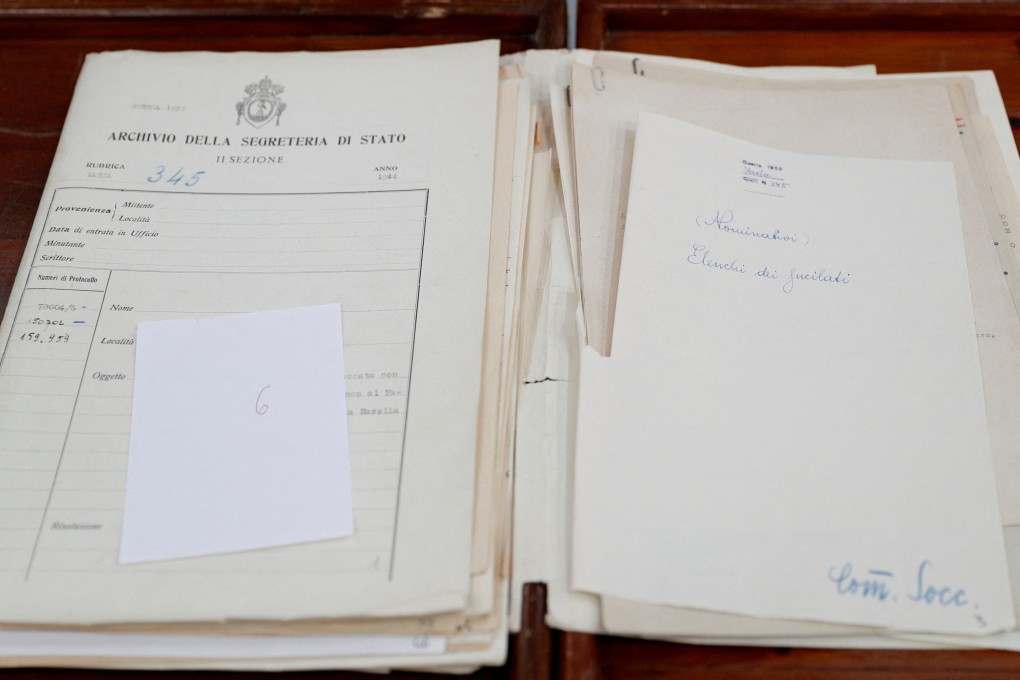 GUERRA 1939
ARCHIVIO DELLA SEGRETERIA DI STATO
II SEZIONE
RUBRICA
VARIA
345
ANNO
1944
Provenienza
Mittente
Località
Data di entrata in Ufficio
Minutante
Scrittore
Numeri di Protocollo
Nome
159.459
Località
Oggetto
con
al
6
Risoluzione
1
Guerra 1939
Varia
345
(Nominativi)
Elenchi dei fucilati
Com. Socc.